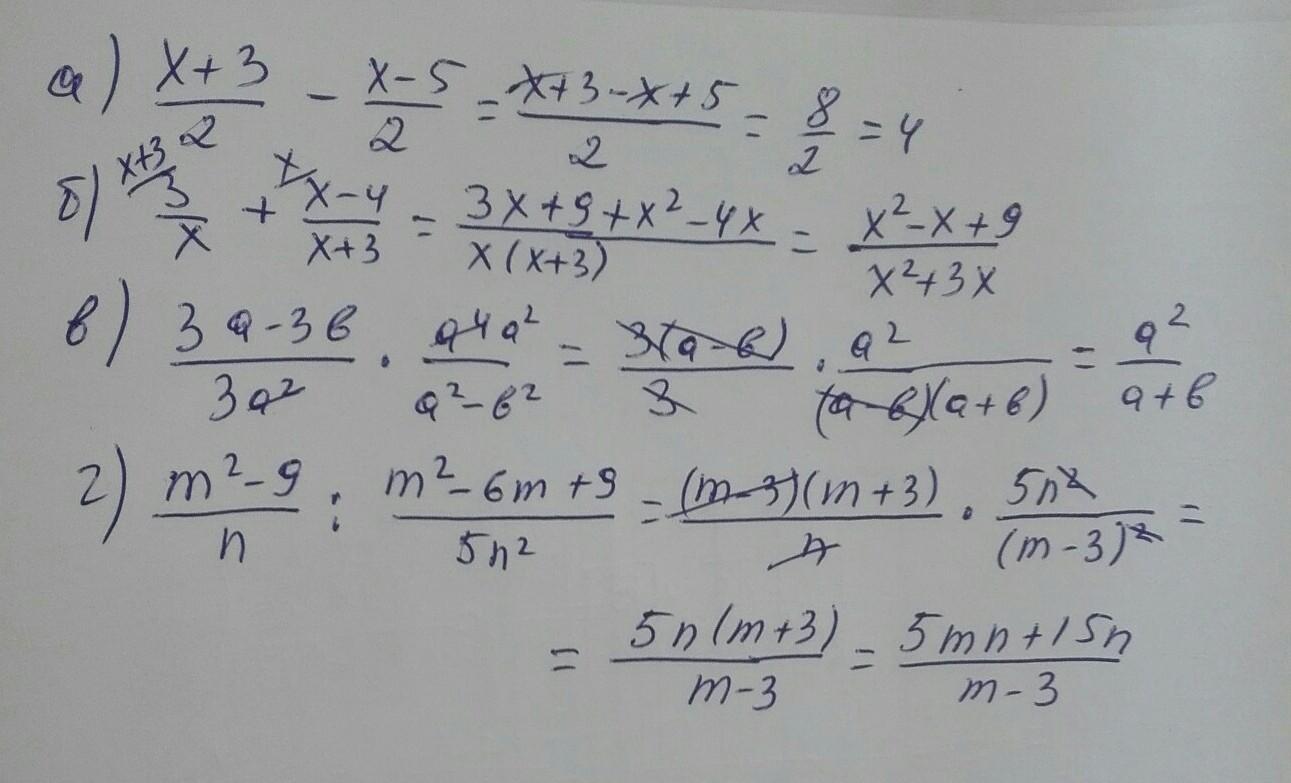 а) (x+3)/2 - (x-5)/2 = (x+3-x+5)/2 = 8/2 = 4
б) x+3 3/x + x (x-4)/(x+3) = (3x+9+x²-4x)/(x(x+3)) = (x²-x+9)/(x²+3x)
в) (3a-3b)/(3a²) · (a⁴ a²)/(a²-b²) = (3(a-b))/3 · a²/((a-b)(a+b)) = a²/(a+b)
г) (m²-9)/n : (m²-6m+9)/(5n²) = ((m-3)(m+3))/n · (5n²)/((m-3)²) =
= (5n(m+3))/(m-3) = (5mn+15n)/(m-3)